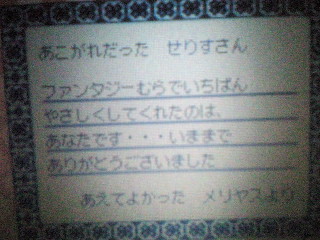 あこがれだった　せりすさん
ファンタジーむらでいちばん
やさしくしてくれたのは、
あなたです・・・いままで
ありがとうございました
あえてよかった　メリヤスより